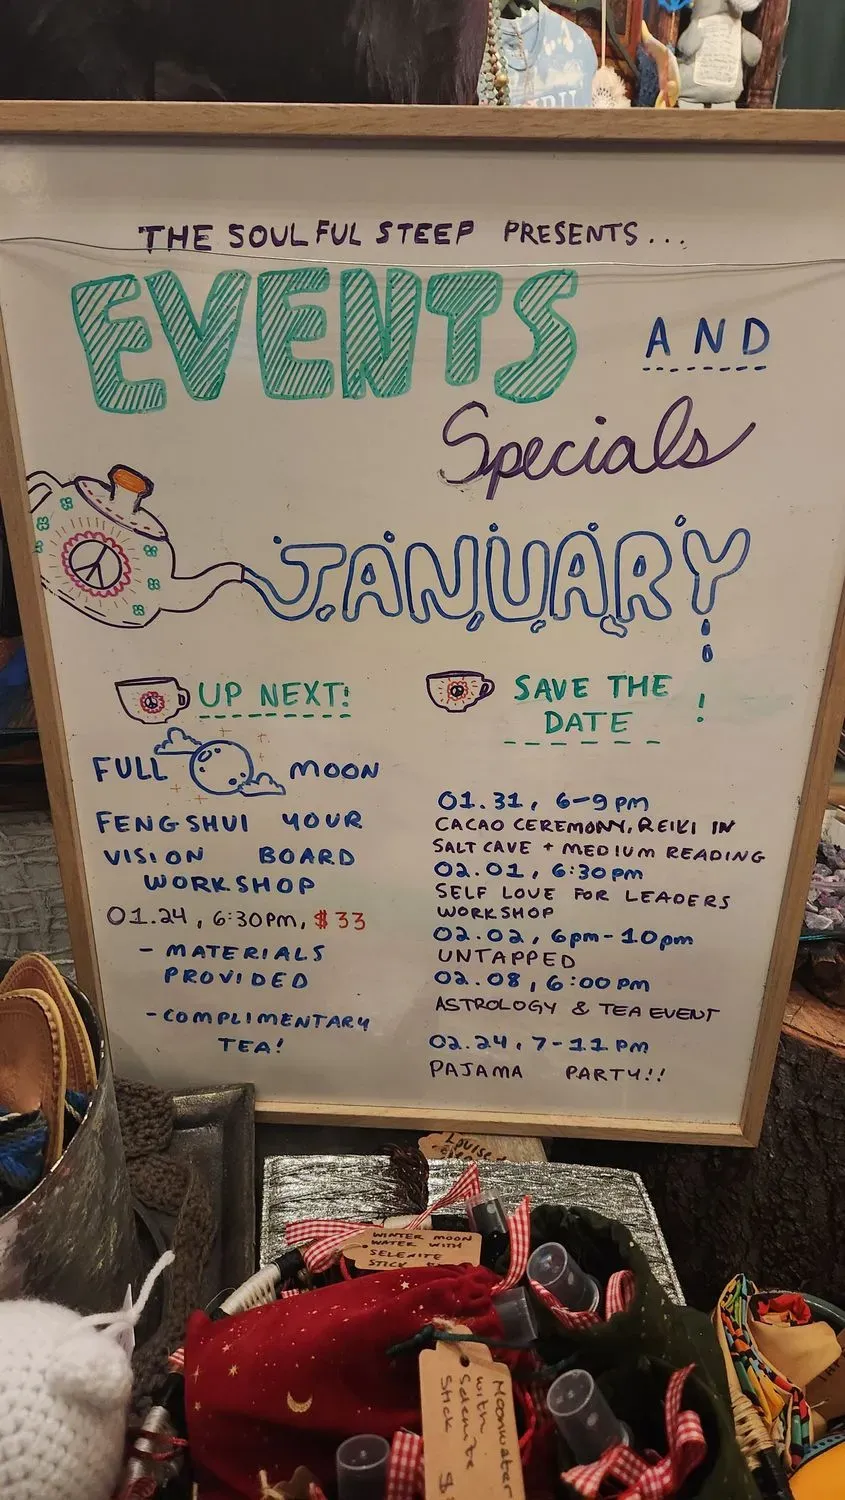 THE SOULFUL STEEP PRESENTS...
EVENTS AND
Specials
JANUARY
UP NEXT!
FULL MOON
FENGSHUI YOUR
VISION BOARD
WORKSHOP
01.24, 6:30pm, $33
- MATERIALS
PROVIDED
- COMPLIMENTARY
TEA!
SAVE THE
DATE !
01.31, 6-9pm
CACAO CEREMONY, REIKI IN
SALT CAVE + MEDIUM READING
02.01, 6:30pm
SELF LOVE FOR LEADERS
WORKSHOP
02.02, 6pm-10pm
UNTAPPED
02.08, 6:00pm
ASTROLOGY & TEA EVENT
02.24, 7-11pm
PAJAMA PARTY!!
WINTER MOON
WATER WITH
SELENITE
STICK
Moonwater
with
Selenite
Stick